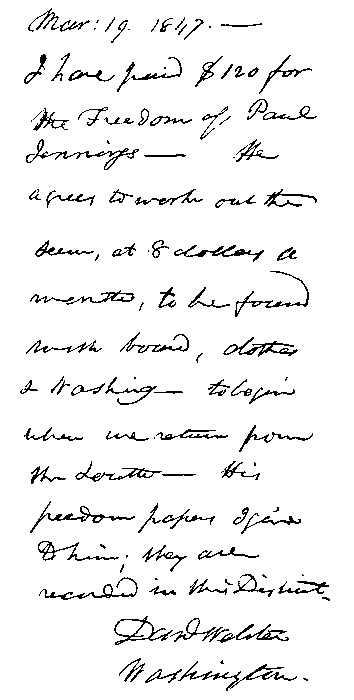 Mar: 19. 1847. —
I have paid $120 for
the Freedom of Paul
Jennings — He
agrees to work out the
sum, at 8 dollars a
month, to be found
with board, clothes
& Washing — to begin
when we return from
the South — His
freedom papers I give
to him; they are
recorded in this District.
Danl Webster
Washington.